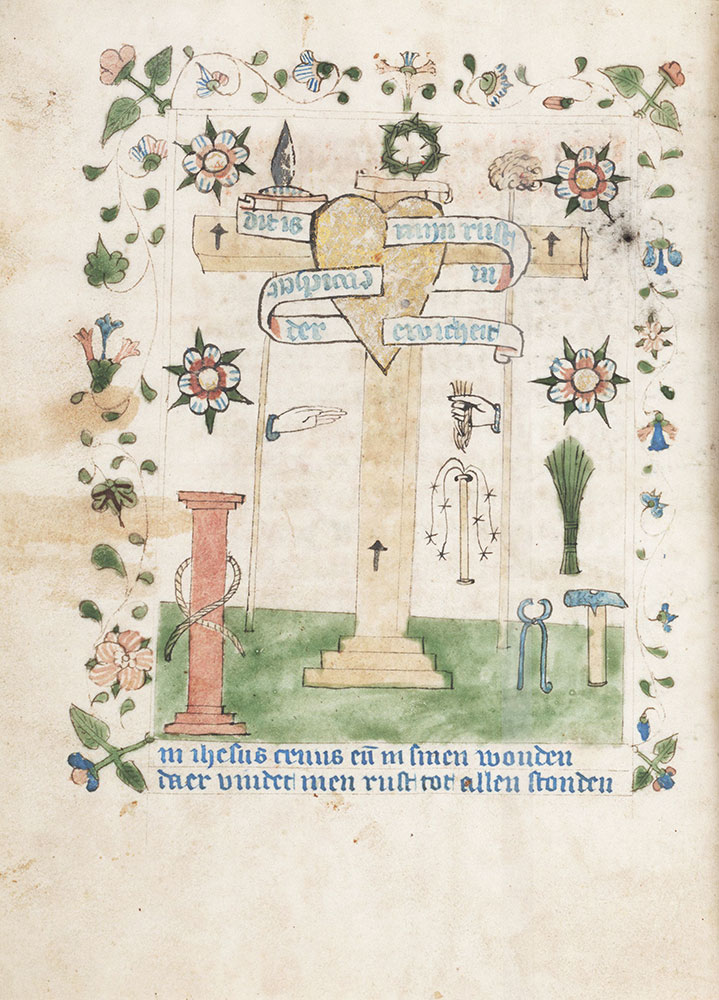 dit is mijn rust
in ewicheit
der ewicheit
in ihesus cruus en̄ in sinen wonden
daer vindet men rust tot allen stonden